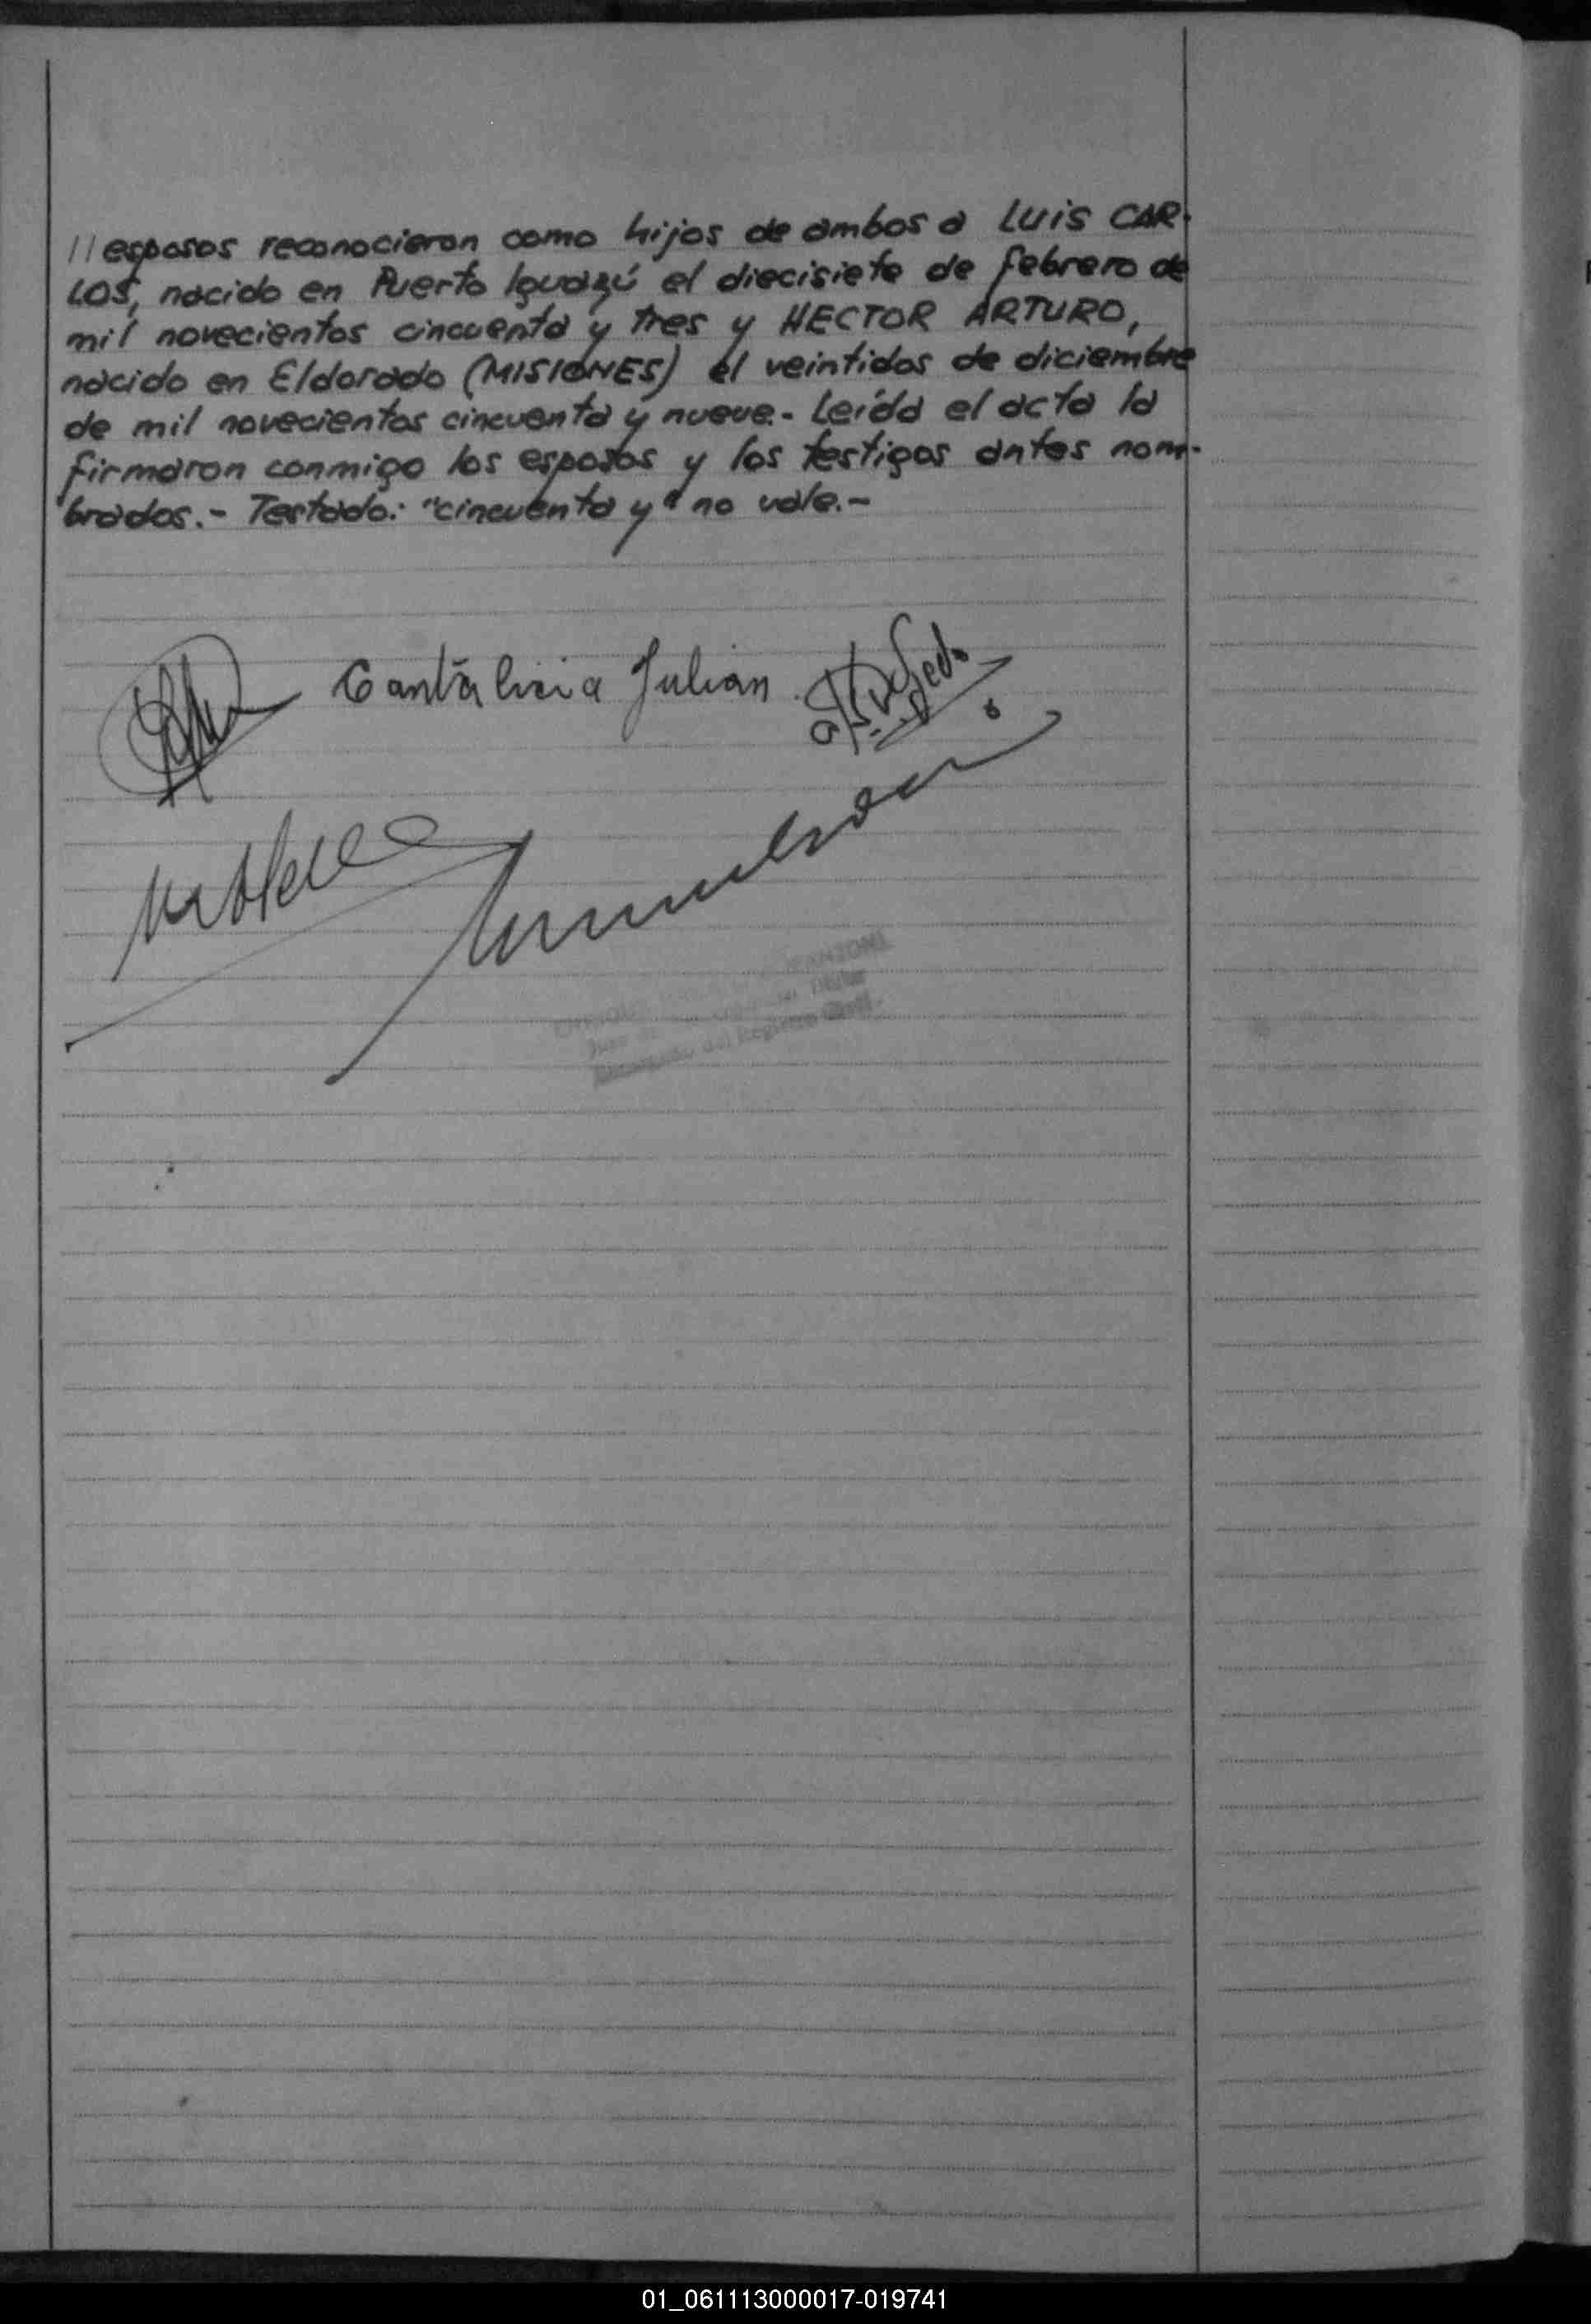 //esposos reconocieron como hijos de ambos a LUIS CAR-
LOS, nacido en Puerto Iguazú el diecisiete de febrero de
mil novecientos cincuenta y tres y HECTOR ARTURO,
nacido en Eldorado (MISIONES) el veintidos de diciembre
de mil novecientos cincuenta y nueve.- Leída el acta la
firmaron conmigo los esposos y los testigos antes nom-
brados.- Testado: "cincuenta y" no vale.-
Cantalicia Julian
del Registro Civil
01_061113000017-019741